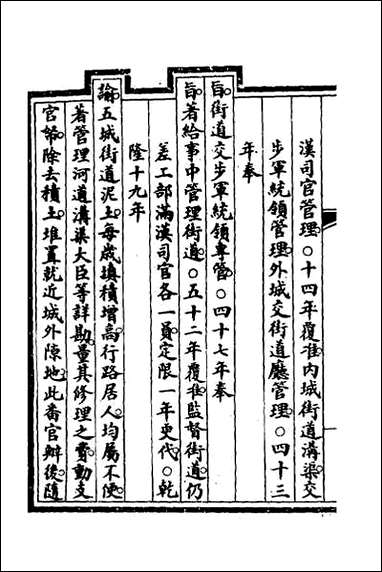 漢司官管理○十四年覆准内城街道溝渠交
步軍統領管理外城交街道廳管理○四十三
年奉
旨街道交步軍統領專管○四十七年奉
旨著給事中管理街道○五十二年覆准監督街道仍
差工部滿漢司官各一員定限一年更代○乾
隆十九年
諭五城街道泥土每歲填積增高行路居人均屬不便
著管理河道溝渠大臣等詳勘量其修理之費動支
官帑除去積土堆置就近城外隙地此番官辦後隨